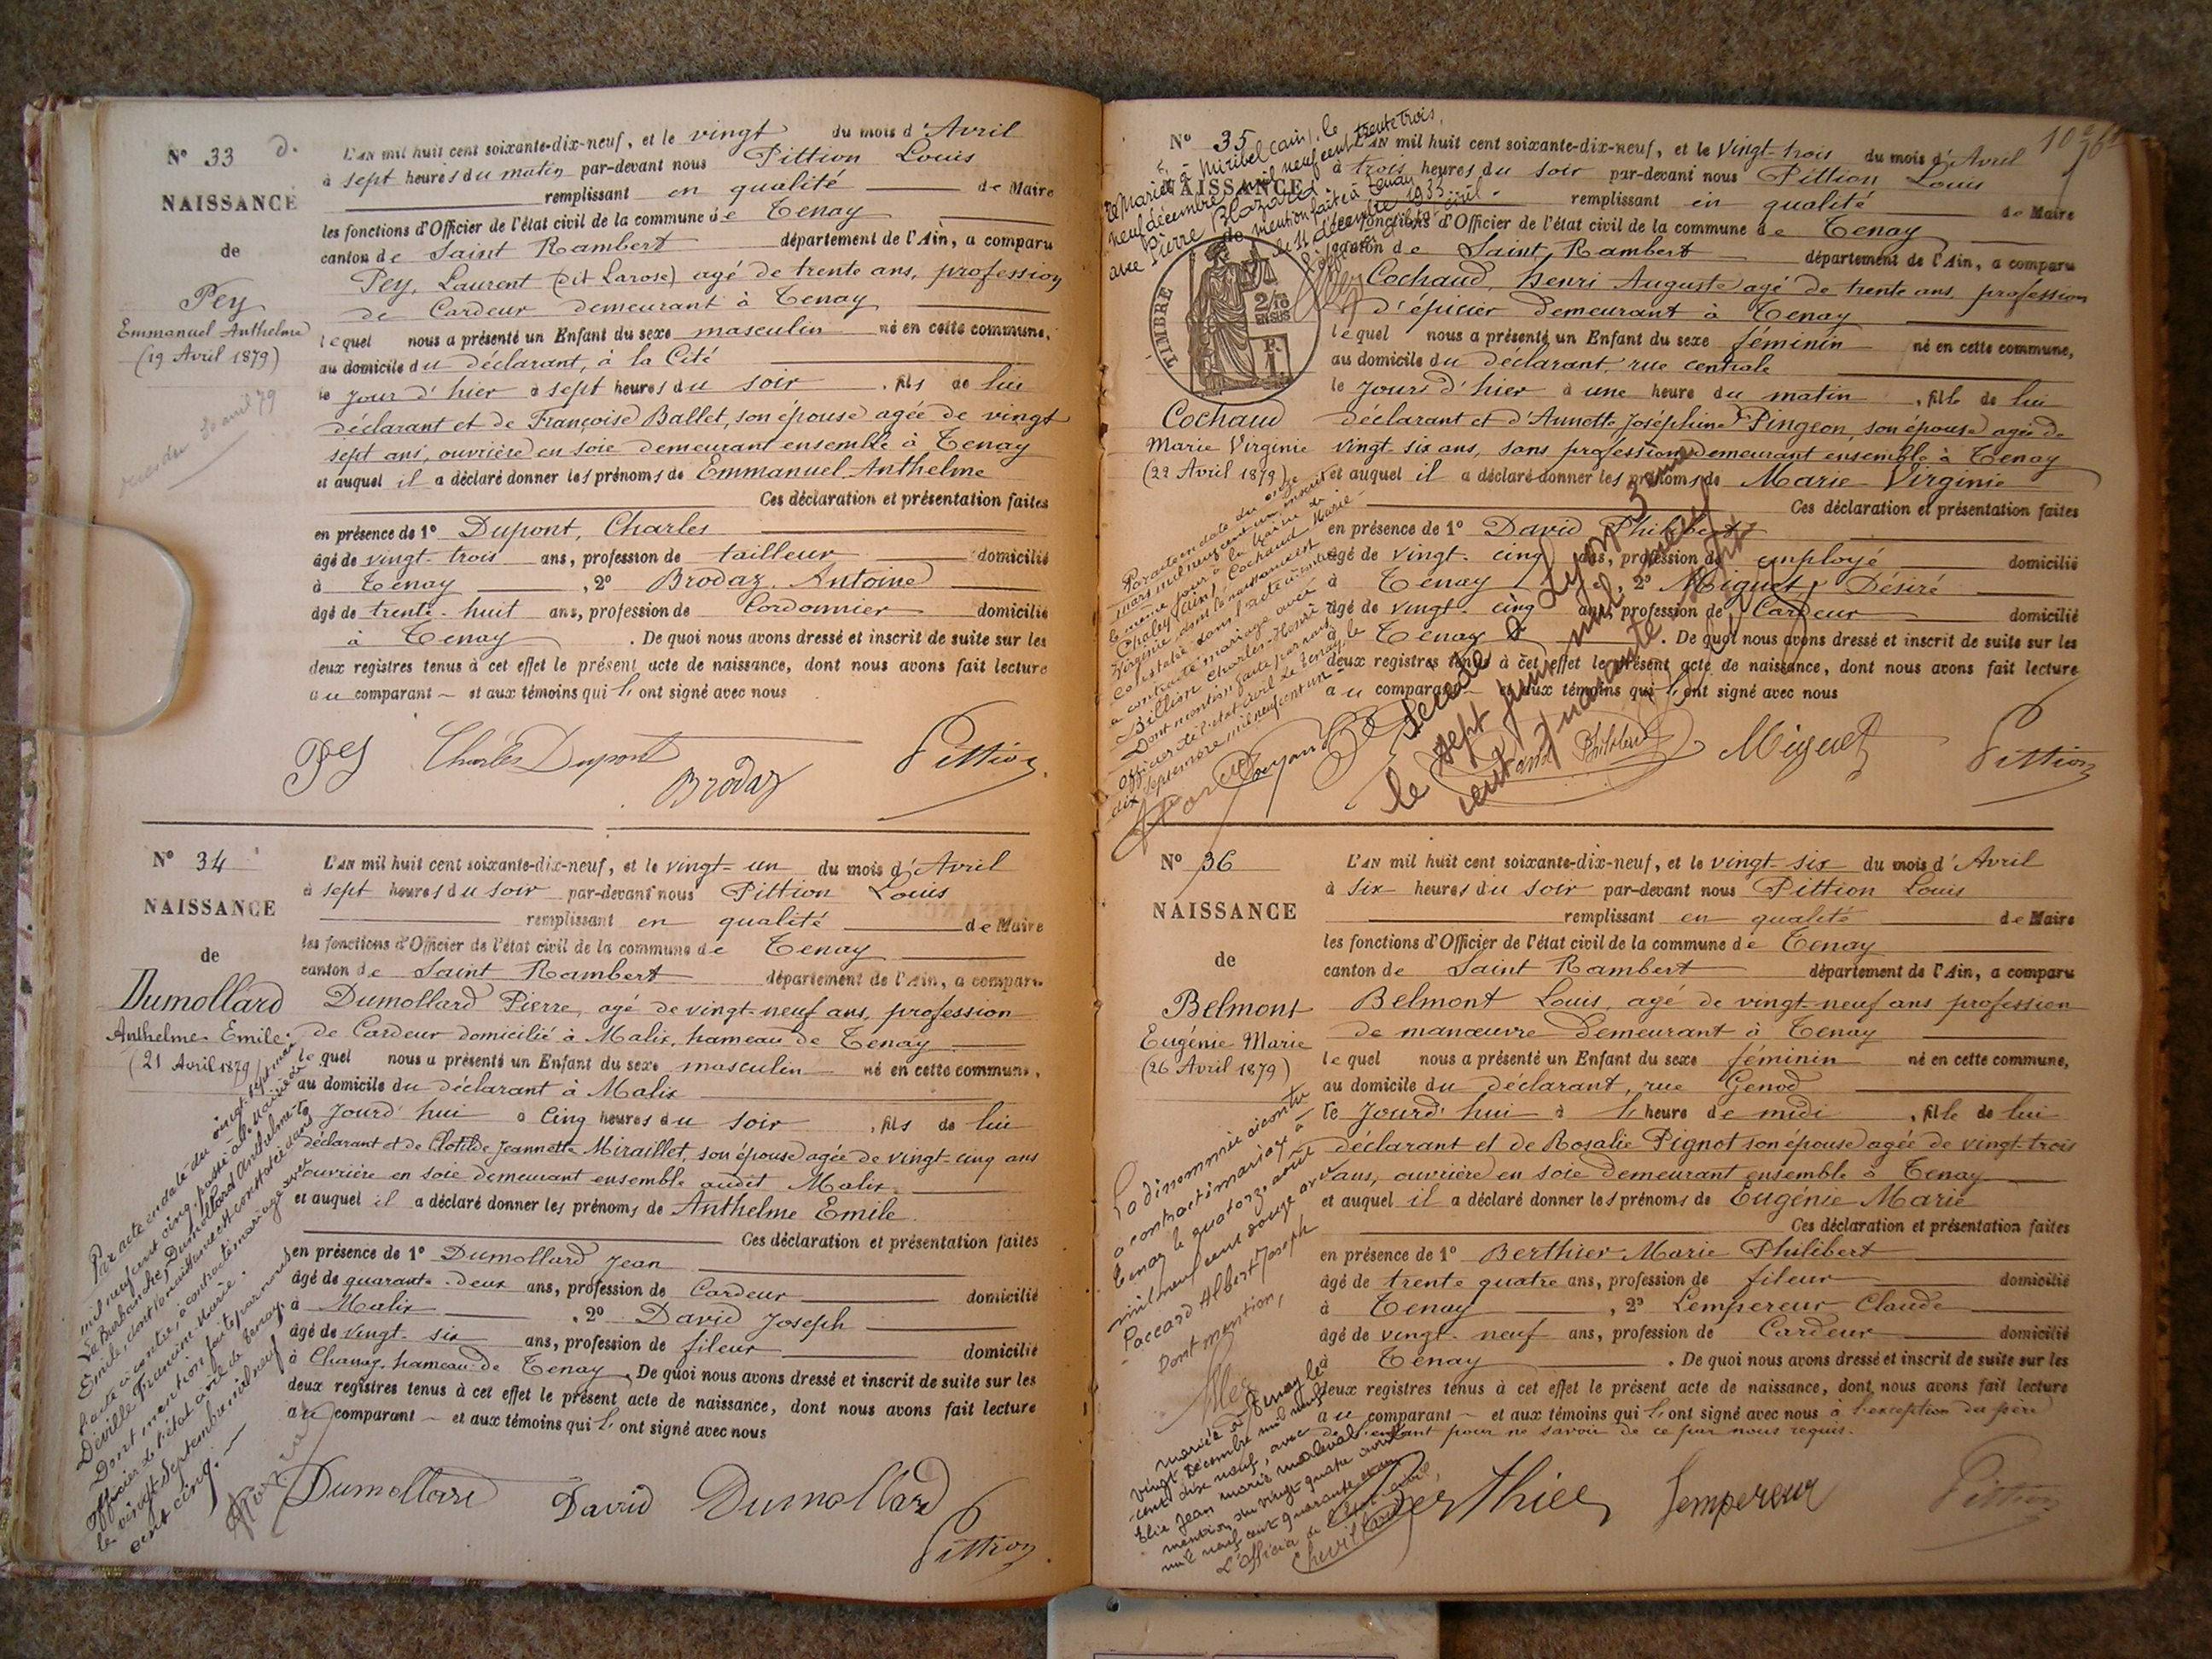 N° 33 d.
NAISSANCE
de
Pey
Emmanuel Anthelme
(19 Avril 1879)
L'AN mil huit cent soixante-dix-neuf, et le vingt du mois d'Avril
à sept heures du matin par-devant nous Pittion Louis
remplissant en qualité de Maire
les fonctions d'Officier de l'état civil de la commune de Tenay
canton de Saint Rambert département de l'Ain, a comparu
Pey, Laurent (dit Larose) agé de trente ans, profession
de Cardeur demeurant à Tenay
lequel nous a présenté un Enfant du sexe masculin né en cette commune,
au domicile du déclarant, à la Cité
le jour d'hier à sept heures du soir, fils de lui
déclarant et de Françoise Ballet, son épouse agée de vingt
sept ans, ouvrière en soie demeurant ensemble à Tenay
et auquel il a déclaré donner les prénoms de Emmanuel Anthelme
Ces déclaration et présentation faites
en présence de 1° Dupont, Charles
âgé de vingt-trois ans, profession de tailleur domicilié
à Tenay, 2° Brodaz Antoine
âgé de trente-huit ans, profession de Cordonnier domicilié
à Tenay. De quoi nous avons dressé et inscrit de suite sur les
deux registres tenus à cet effet le présent acte de naissance, dont nous avons fait lecture
au comparant et aux témoins qui l'ont signé avec nous
Pey Charles Dupont Brodaz Pittion
N° 34
NAISSANCE
de
Dumollard
Anthelme Emile
(21 Avril 1879)
Par acte en date du vingt-sept mai
mil neuf cent cinq, passé à la Mairie de
La Burbanche, Dumollard Anthelme
Emile, dont la naissance est constatée dans
l'acte ci-contre, a contracté mariage avec
Déville Francine Marie.
Dont mention faite par nous
officier de l'état civil de Tenay,
le vingt Septembre mil neuf
cent cinq.
L'AN mil huit cent soixante-dix-neuf, et le vingt-un du mois d'Avril
à sept heures du soir par-devant nous Pittion Louis
remplissant en qualité de Maire
les fonctions d'Officier de l'état civil de la commune de Tenay
canton de Saint Rambert département de l'Ain, a comparu
Dumollard Pierre, agé de vingt-neuf ans, profession
de Cardeur domicilié à Malix, hameau de Tenay
lequel nous a présenté un Enfant du sexe masculin né en cette commune,
au domicile du déclarant à Malix
Jourd'hui à Cinq heures du soir, fils de lui
déclarant et de Clotilde Jeannette Miraillet, son épouse agée de vingt-cinq ans
ouvrière en soie demeurant ensemble audit Malix
et auquel il a déclaré donner les prénoms de Anthelme Emile.
Ces déclaration et présentation faites
en présence de 1° Dumollard Jean
âgé de quarante-deux ans, profession de Cardeur domicilié
à Malix, 2° David Joseph
âgé de vingt-six ans, profession de fileur domicilié
à Chanay hameau de Tenay. De quoi nous avons dressé et inscrit de suite sur les
deux registres tenus à cet effet le présent acte de naissance, dont nous avons fait lecture
au comparant et aux témoins qui l'ont signé avec nous
Dumollard David Dumollard
Pittion
N° 35
NAISSANCE
de
remariée à Miribel (ain), le
neuf décembre mil neuf cent trente trois,
avec Pierre Blazard
mention faite à Tenay
le 11 décembre 1933
TIMBRE
Cochaud
Marie Virginie
(22 Avril 1879)
Par acte en date du onze
mars mil neuf cent un, inscrit
le même jour à la mairie de
Chaley (ain), Cochaud Marie
Virginie, dont la naissance est
constatée dans l'acte ci-contre
a contracté mariage avec
Billion Charles-Henri
Dont mention faite par nous
officier de l'état civil de Tenay, le
dix Septembre mil neuf cent un
L'AN mil huit cent soixante-dix-neuf, et le Vingt-trois du mois d'Avril
à trois heures du soir par-devant nous Pittion Louis
remplissant en qualité de Maire
les fonctions d'Officier de l'état civil de la commune de Tenay
canton de Saint Rambert département de l'Ain, a comparu
Cochaud, Henri Auguste agé de trente ans, profession
d'épicier demeurant à Tenay
lequel nous a présenté un Enfant du sexe féminin né en cette commune,
au domicile du déclarant, rue centrale
le Jour d'hier à une heure du matin, fille de lui
déclarant et d'Annette Joséphine Pingeon, son épouse agée de
vingt-six ans, sans profession demeurant ensemble à Tenay
et auquel il a déclaré donner les prénoms de Marie Virginie
Ces déclaration et présentation faites
en présence de 1° David Philibert
âgé de vingt-cinq ans, profession de employé domicilié
à Tenay, 2° Miguet, Désiré
âgé de vingt-cinq ans, profession de Cardeur domicilié
à Tenay. De quoi nous avons dressé et inscrit de suite sur les
deux registres tenus à cet effet le présent acte de naissance, dont nous avons fait lecture
au comparant et aux témoins qui l'ont signé avec nous
Décédée à Lyon 3ème
le sept juin mil neuf
cent quarante-sept
David Philibert Miguet Pittion
N° 36
NAISSANCE
de
Belmont
Eugénie Marie
(26 Avril 1879)
La dénommée ci contre
a contracté mariage à
Tenay le quatorze août
mil neuf cent douze avec
Paccard Albert Joseph
Dont mention,
mariée à Tenay le
vingt Décembre mil neuf
cent dix neuf, avec
Elie Jean Marie
mention du vingt quatre avril
mil neuf cent quarante et un
L'Officier de l'état civil,
L'AN mil huit cent soixante-dix-neuf, et le vingt six du mois d'Avril
à Six heures du soir par-devant nous Pittion Louis
remplissant en qualité de Maire
les fonctions d'Officier de l'état civil de la commune de Tenay
canton de Saint Rambert département de l'Ain, a comparu
Belmont Louis, agé de vingt-neuf ans profession
de manœuvre demeurant à Tenay
lequel nous a présenté un Enfant du sexe féminin né en cette commune,
au domicile du déclarant, rue Genod
le Jourd'hui à l'heure de midi, fille de lui
déclarant et de Rosalie Pignot son épouse agée de vingt-trois
ans, ouvrière en soie demeurant ensemble à Tenay
et auquel il a déclaré donner les prénoms de Eugénie Marie
Ces déclaration et présentation faites
en présence de 1° Berthier Marie Philibert
âgé de trente quatre ans, profession de fileur domicilié
à Tenay, 2° Lempereur Claude
âgé de vingt-neuf ans, profession de Cardeur domicilié
à Tenay. De quoi nous avons dressé et inscrit de suite sur les
deux registres tenus à cet effet le présent acte de naissance, dont nous avons fait lecture
au comparant et aux témoins qui l'ont signé avec nous à l'exception du père
de l'enfant pour ne savoir de ce par nous requis.
Berthier Lempereur Pittion